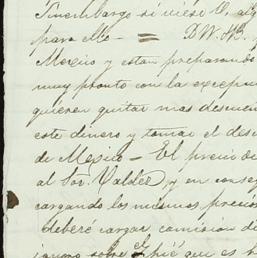 Sinembargo si viese U. alg
para ello — = D. W. H. B.
Mexico y estan preparando
muy pronto con la excepci
quieren quitar mas descuen
este dinero y tomar el desc
de Mexico — El precio de
al Sor. Valdez, y en conseq
cargando los mismos precios
deberé cargar, comision d
sobre que es h